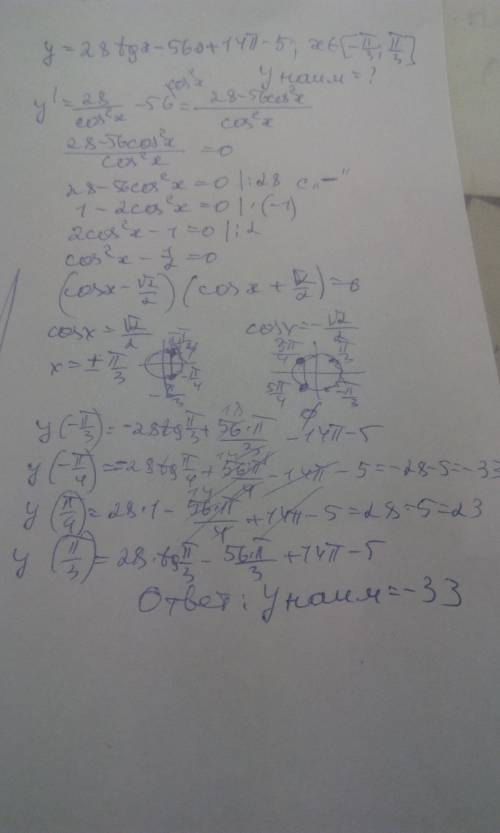 y = 28 tgx - 56x + 14π - 5; x∈[-π/3; π/3]
y наим = ?
y' = 28/cos²x - 56 = 28-56cos²x/cos²x
cos²x
28-56cos²x/cos²x = 0
28-56cos²x = 0 |:28 с „-"
1 - 2cos²x = 0 |·(-1)
2cos²x - 1 = 0 |:2
cos²x - 1/2 = 0
(cosx - √2/2)(cosx + √2/2) = 0
cosx = √2/2 cosx = -√2/2
x = ± π/3
π/4 -π/4 -π/3
3π/4 π/3 5π/4 -π/3
y(-π/3) = -28tg π/3 + 56·π/3 - 14π - 5
y(-π/4) = -28tg π/4 + 56·π/4 - 14π - 5 = -28-5 = -33
y(π/4) = 28·1 - 56·π/4 + 14π - 5 = 28-5 = 23
y(π/3) = 28·tg π/3 - 56·π/3 + 14π - 5
Ответ: y наим = -33